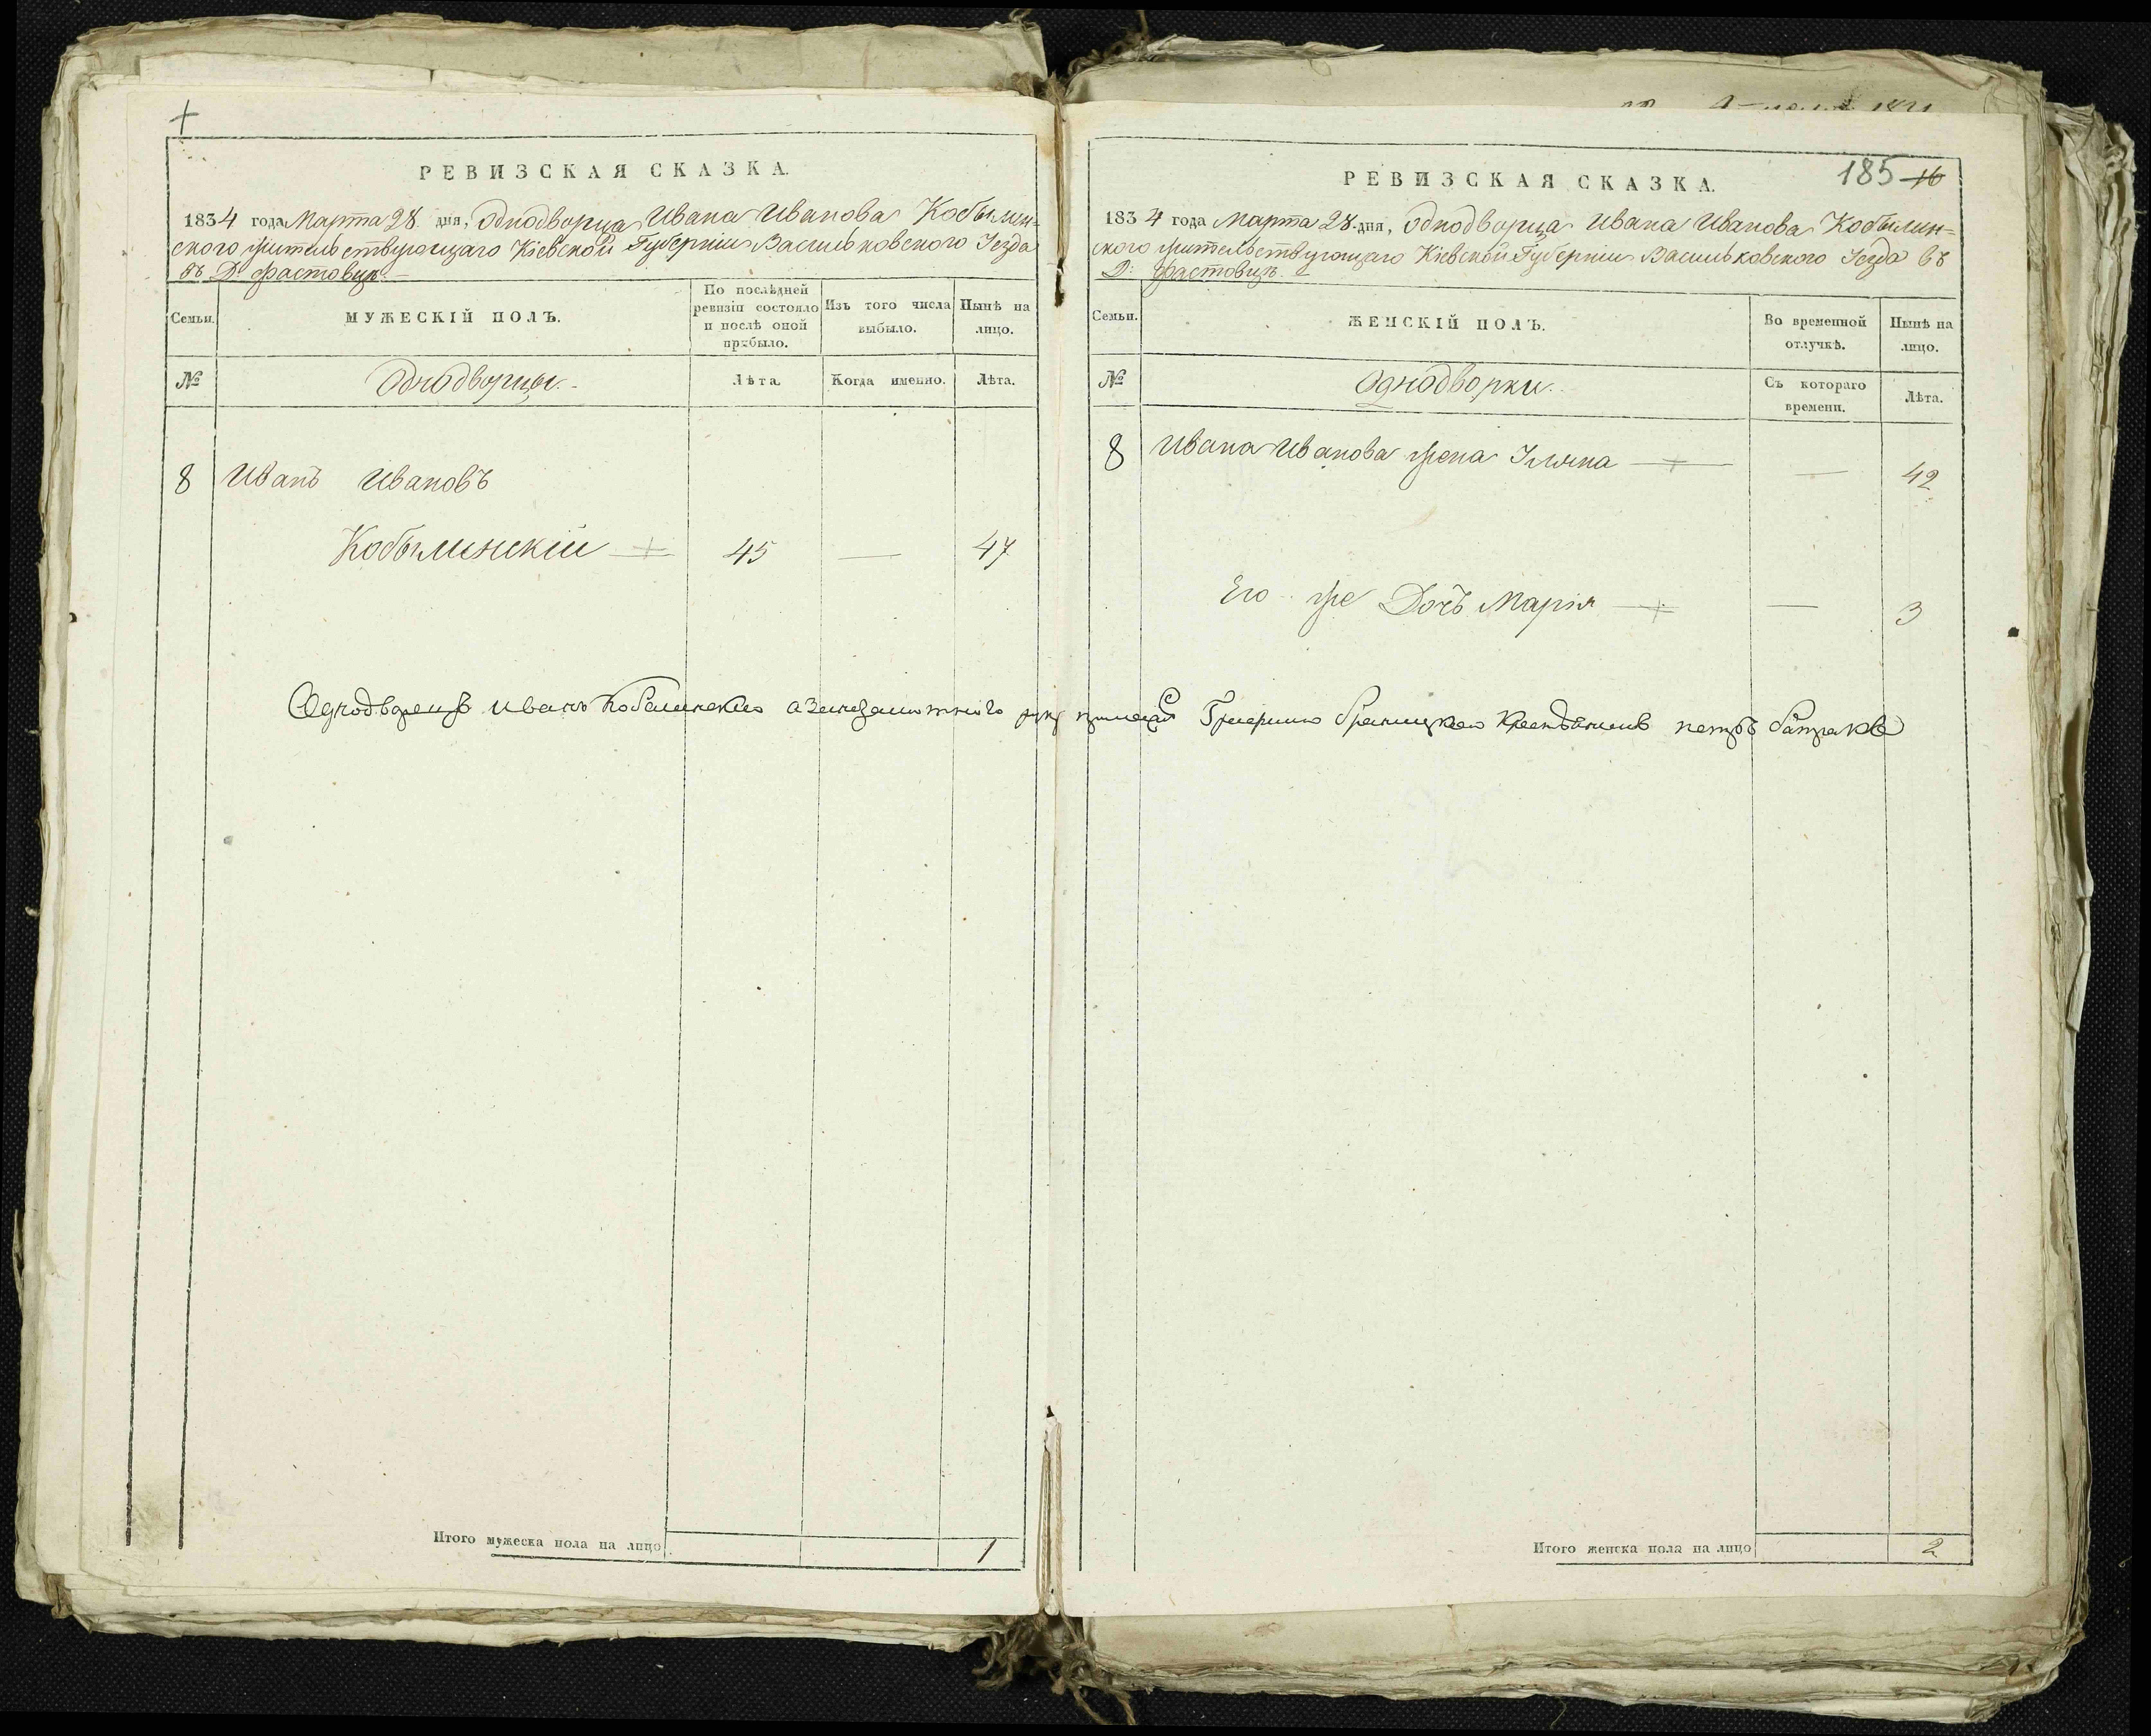 РЕВИЗСКАЯ СКАЗКА.
1834 года Марта 28 дня, Однодворца Ивана Иванова Кобылин-
ского жительствующаго Кіевской Губерніи Васильковского Уезда
въ Д: Фастовцѣ.
Семьи.
МУЖЕСКІЙ ПОЛЪ.
По послѣдней ревизіи состояло и послѣ оной прибыло.
Изъ того числа выбыло.
Нынѣ на лицо.
№
Однодворцы.
Лѣта
Когда именно.
Лѣта.
8 Иванъ Ивановъ
Кобылинскій — 45 — 47
Однодворецъ Иванъ Кобылинскій а
Итого мужеска пола на лицо 1
185 16
РЕВИЗСКАЯ СКАЗКА.
1834 года Марта 28 дня, Однодворца Ивана Иванова Кобылин=
ского жительствующаго Кіевской Губерніи Васильковского Уезда въ
Д: Фастовцѣ.
Семьи.
ЖЕНСКІЙ ПОЛЪ.
Во временной отлучкѣ.
Нынѣ на лицо.
№
Однодворки.
Съ котораго времени.
Лѣта.
8 Ивана Иванова жена — — 42
Его же Дочь Марія — — 3
петръ
Итого женска пола на лицо 2